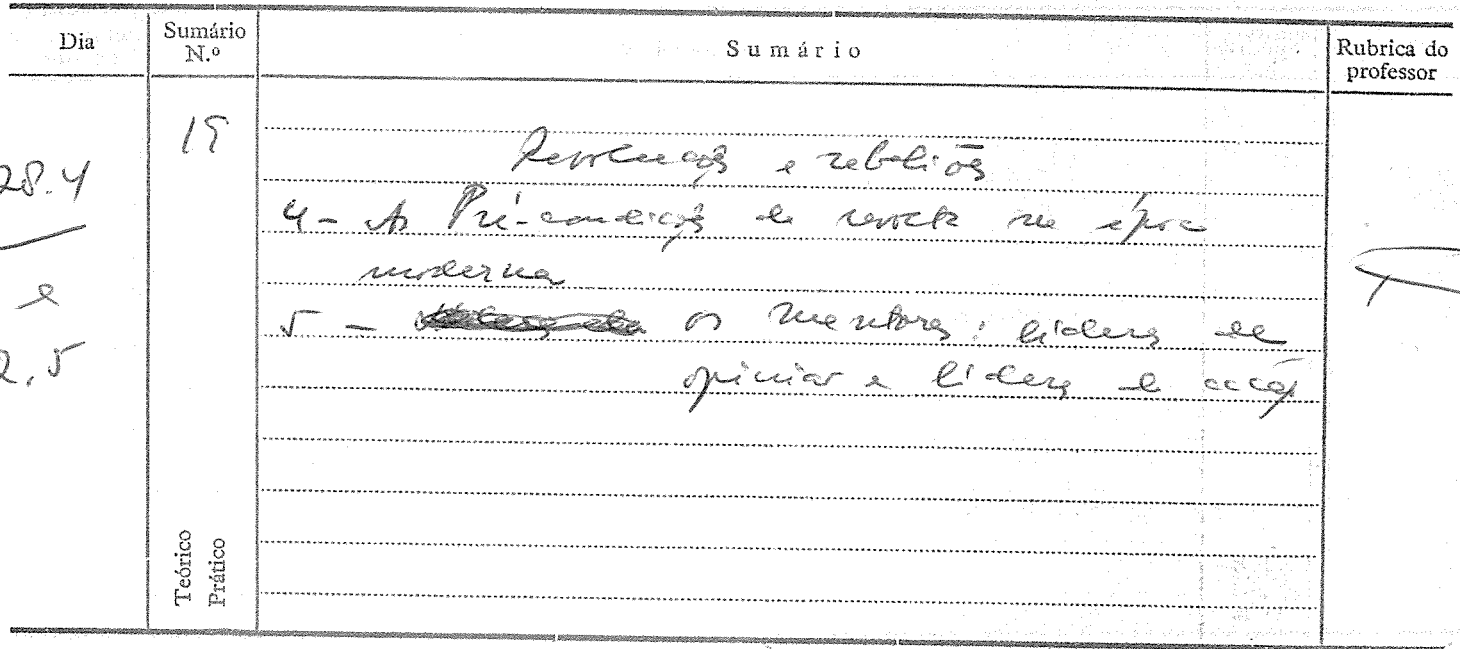 Dia
Sumário
N.º
Sumário
Rubrica do
professor
28.4
e
2.5
19
Revoluções e rebeliões
4 - As Pré-condições de revolta na época
moderna
5 - os mentores: líderes de
opinião e líderes de acção
Teórico
Prático